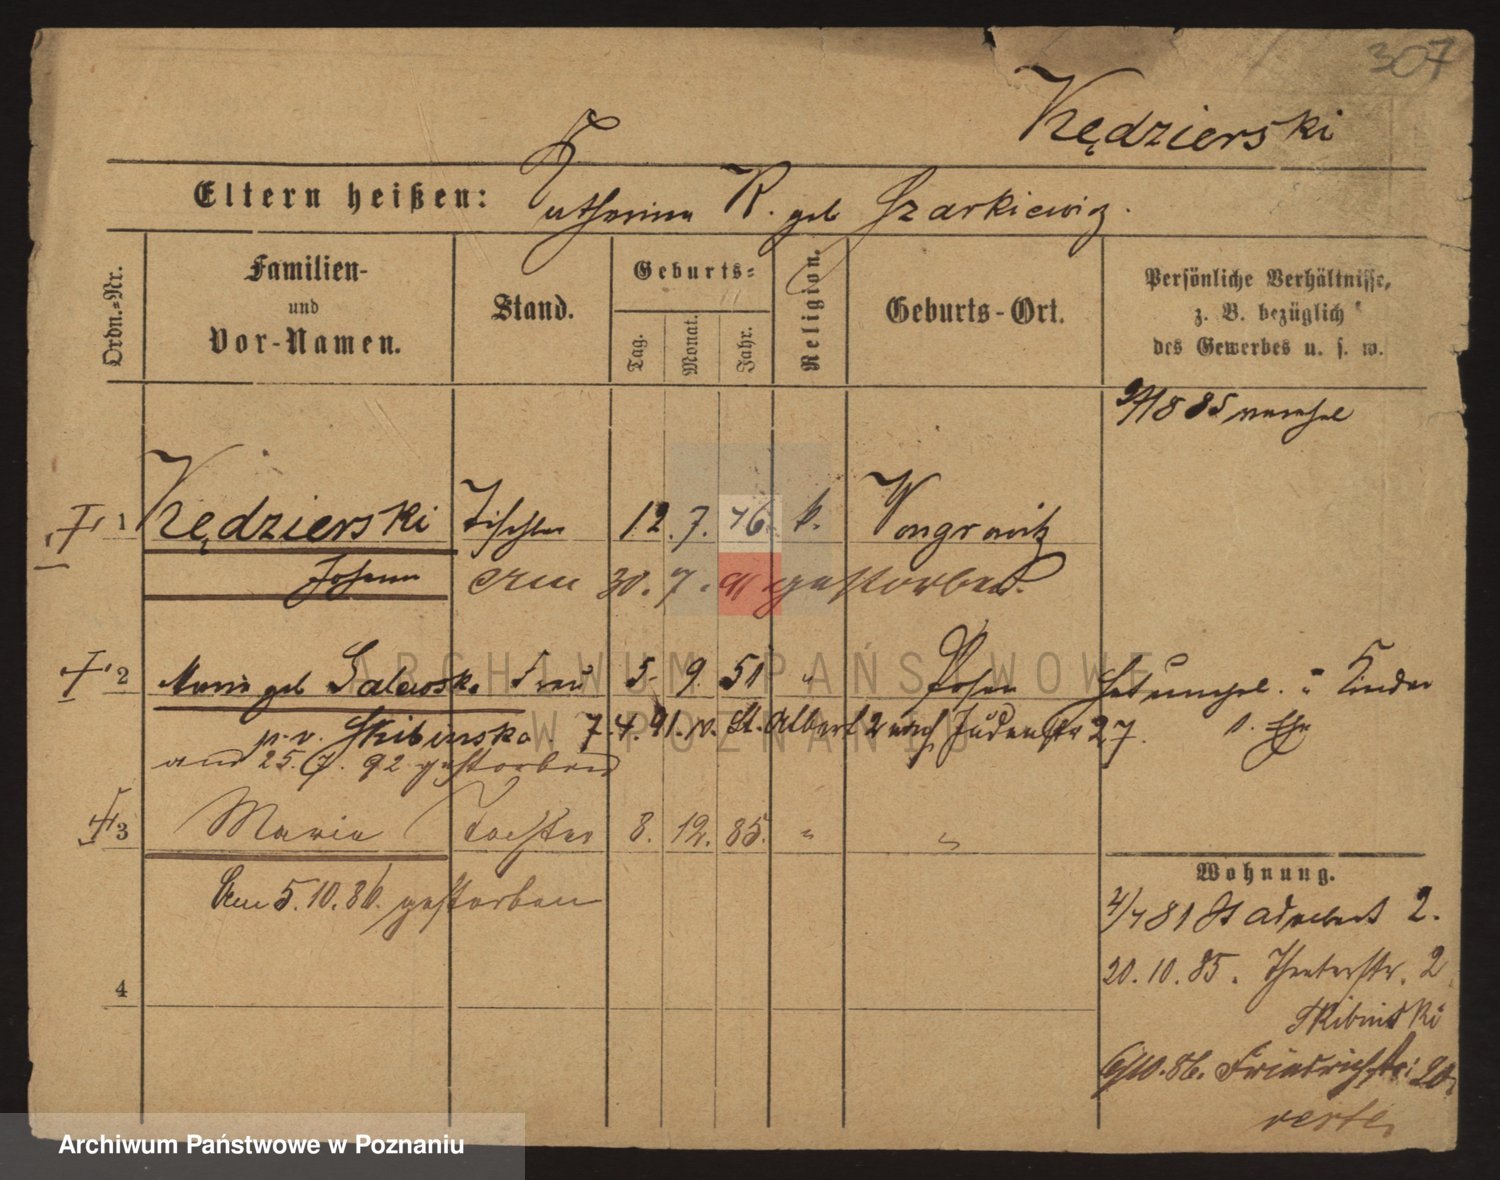 307
Kędzierski
Eltern heißen: Katharina K. geb Szarkiewicz.
Ordn.-Nr.
Familien- und Vor-Namen.
Stand.
Geburts-
Tag. Monat. Jahr.
Religion.
Geburts-Ort.
Persönliche Verhältnisse, z. B. bezüglich des Gewerbes u. s. w.
85
1 Kędzierski Tischler 12. 7. 76. k. Wongrowitz
Johann am 30. 7. gestorben.
2 Maria geb Salewska Frau 5. 9. 51 " Posen
" Kinder
p. v. Skibinska. 7. 4. 91. v. St. Adalbert 2 nach Judenstr 27.
1. Ehe
am 25. 7. 92 gestorben
3 Maria Tochter 8. 12. 85. " "
Am 5. 10. 86. gestorben
4
Wohnung.
81 St Adalbert 2.
20. 10. 85. Theaterstr. 2
Skibinski
6/10. 86. Friedrichstr. 20
verte
ARCHIWUM PAŃSTWOWE
W POZNANIU
Archiwum Państwowe w Poznaniu